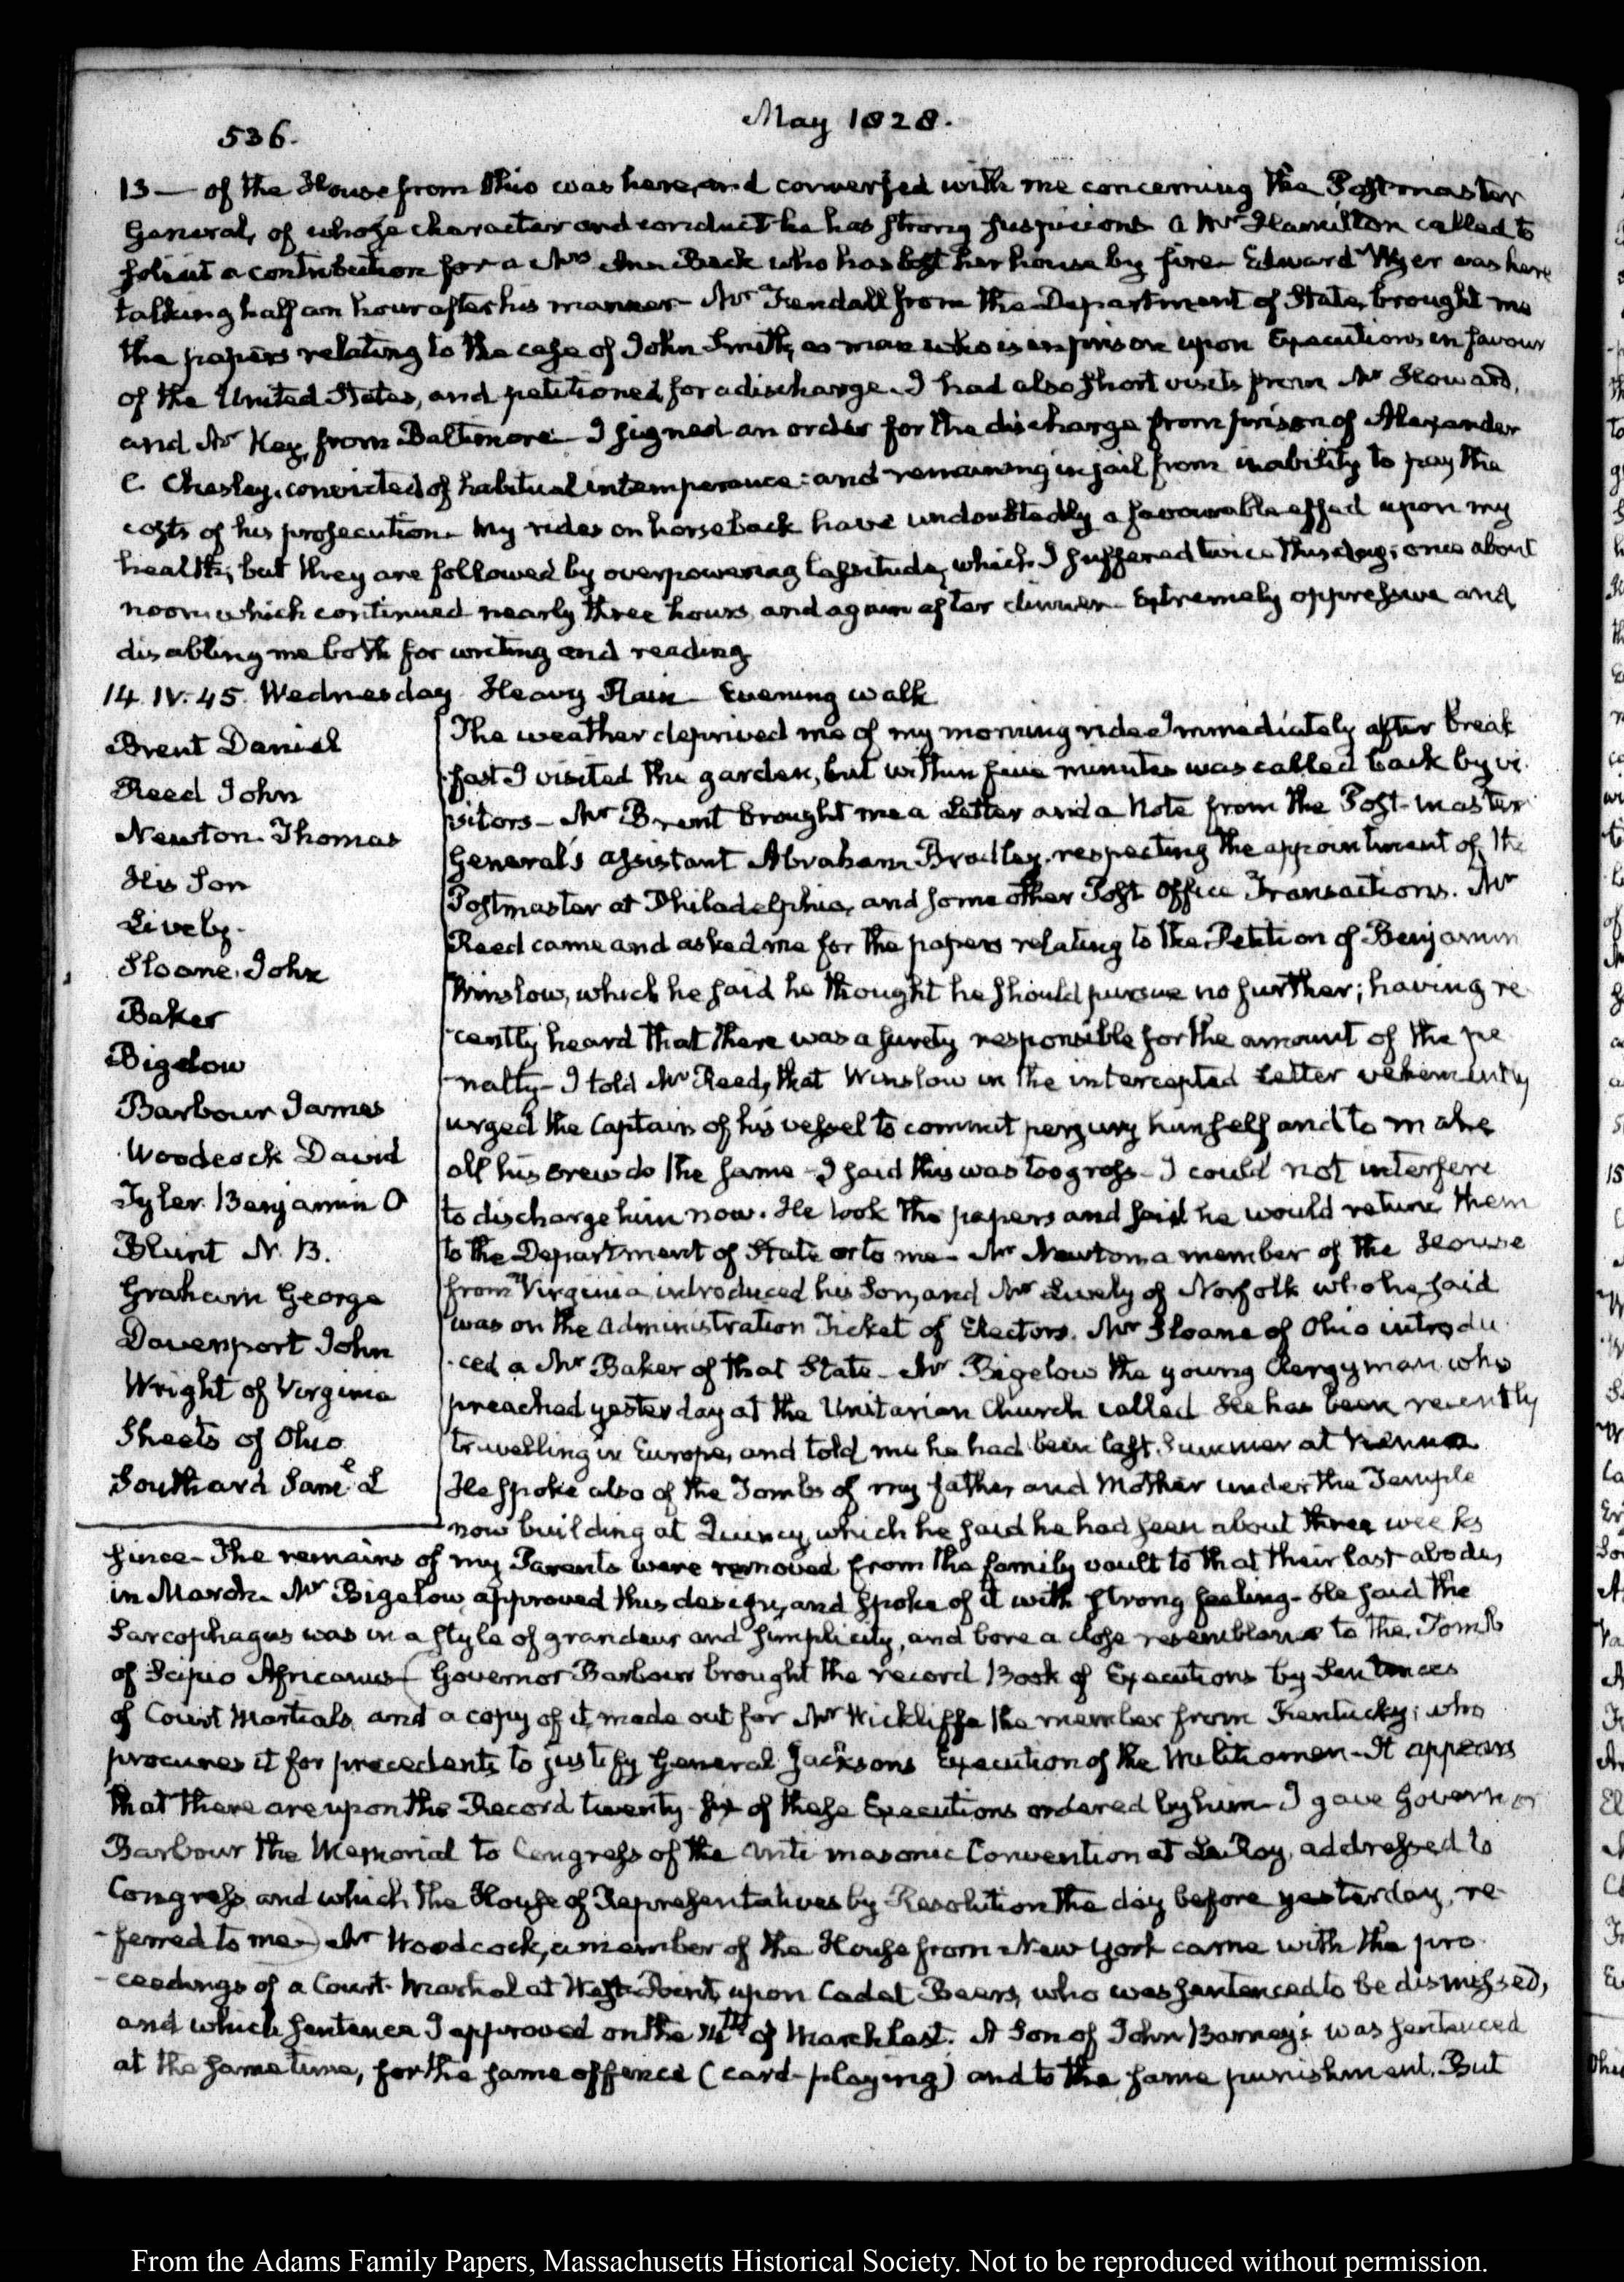 536.
May 1828.
13 — of the House from Ohio was here, and conversed with me concerning the Postmaster
General, of whose character and conduct he has strong suspicions. a Mr Hamilton called to
solicit a contribution for a Mrs Ann Beck who has lost her house by fire. Edward Wyer was here
talking half an hour after his manner. Mr Kendall from the Department of State, brought me
the papers relating to the case of John Smith, a man who is in prison upon Executions in favour
of the United States, and petitioned for a discharge. I had also short visits from Mr Howard,
and Mr Key, from Baltimore. I signed an order for the discharge from prison of Alexander
C. Chesley, convicted of habitual intemperance: and remaining in jail from inability to pay the
costs of his prosecution. My rides on horseback have undoubtedly a favourable effect upon my
health; but they are followed by overpowering lassitude, which I suffered twice this day; once about
noon which continued nearly three hours, and again after dinner. Extremely oppressive and
disabling me both for writing and reading
14. IV. 45. Wednesday. Heavy Rain. Evening walk
Brent Daniel
Reed John
Newton. Thomas
His Son
Lively.
Sloane. John
Baker
Bigelow
Barbour James
Woodcock David
Tyler. Benjamin O
Blunt N. B.
Graham George
Davenport John
Wright of Virginia
Sheets of Ohio
Southard Saml. L
The weather deprived me of my morning ride Immediately after break
-fast I visited the garden, but within five minutes was called back by vi
sitors — Mr Brent brought me a Letter and a Note from the Post-master
General's assistant Abraham Bradley, respecting the appointment of the
Postmaster at Philadelphia, and some other Post Office Transactions. Mr
Reed came and asked me for the papers relating to the Petition of Benjamin
Winslow, which he said he thought he should pursue no further; having re
-cently heard that there was a surety responsible for the amount of the pe
-nalty — I told Mr Reed, that Winslow in the intercepted Letter vehemently
urged the Captain of his vessel to commit perjury himself and to make
all his crew do the same — I said this was too gross — I could not interfere
to discharge him now. He took the papers and said he would return them
to the Department of State or to me — Mr Newton a member of the House
from Virginia introduced his Son, and Mr Lively of Norfolk who he said
was on the Administration Ticket of Electors. Mr Sloane of Ohio introdu
-ced a Mr Baker of that State — Mr Bigelow the young Clergyman who
preached yesterday at the Unitarian Church called He has been recently
travelling in Europe, and told me he had been last Summer at Vienna
He spoke also of the Tombs of my father and Mother under the Temple
now building at Quincy, which he said he had seen about three weeks
since — The remains of my Parents were removed from the family vault to that their last abode,
in March. Mr Bigelow approved this design, and spoke of it with strong feeling — He said the
Sarcophagus was in a style of grandeur and simplicity, and bore a close resemblance to the Tomb
of Scipio Africanus — (Governor Barbour brought the record Book of Executions by Sentences
of Court Martials, and a copy of it made out for Mr Wickliffe the member from Kentucky; who
procures it for precedents to justify General Jacksons Execution of the Militiamen — It appears
that there are upon the Record twenty-six of these Executions ordered by him — I gave Governor
Barbour the Memorial to Congress of the anti masonic Convention at Le Roy, addressed to
Congress and which the House of Representatives by Resolution the day before yesterday, re-
-ferred to me —) Mr Woodcock, a member of the House from New York came with the pro
-ceedings of a Court-Martial at West-Point, upon Cadet Beers, who was sentenced to be dismissed,
and which sentence I approved on the of March last. A Son of John Barney's was sentenced
at the same time, for the same offence (card-playing) and to the same punishment. But
From the Adams Family Papers, Massachusetts Historical Society. Not to be reproduced without permission.